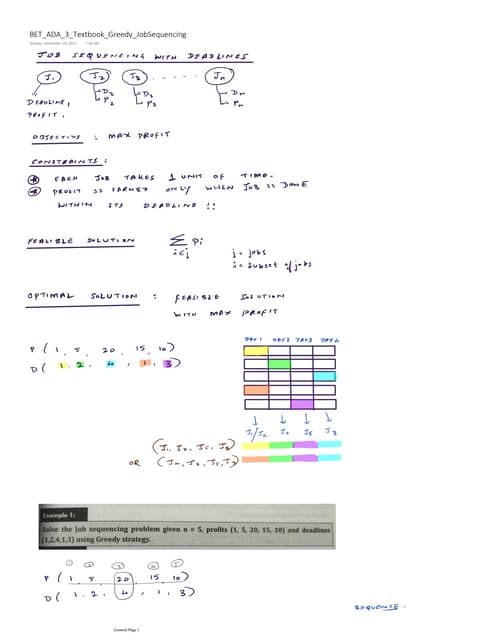 BET_ADA_3_Textbook_Greedy_JobSequencing
JOB SEQUENCING WITH DEADLINES
J1 J2 J3 ..... Jn
DEADLINE, D2 D3 Dn
PROFIT. P2 P3 Pn
OBJECTIVE : MAX PROFIT
CONSTRAINTS :
EACH JOB TAKES 1 UNIT OF TIME.
PROFIT IS EARNED ONLY WHEN JOB IS DONE
WITHIN ITS DEADLINE !!
FEASIBLE SOLUTION ∑ Pi
i∈j
j = jobs
i = subset of jobs
OPTIMAL SOLUTION : FEASIBLE SOLUTION
WITH MAX PROFIT
DAY1 DAY2 DAY3 DAY4
P ( 1, 5, 20, 15, 10 )
D ( 1, 2, 4, 1, 3 )
J1/J4 J2 J5 J3
(J1, J2, J5, J3)
OR (J4, J2, J5, J3)
Example 1:
Solve the Job sequencing problem given n = 5, profits {1, 5, 20, 15, 10} and deadlines
{1,2,4,1,3} using Greedy strategy.
1 2 3 4 5
P ( 1 5 20 15 10 )
D ( 1, 2, 4, 1, 3 )
SEQUENCE .
General Page 1